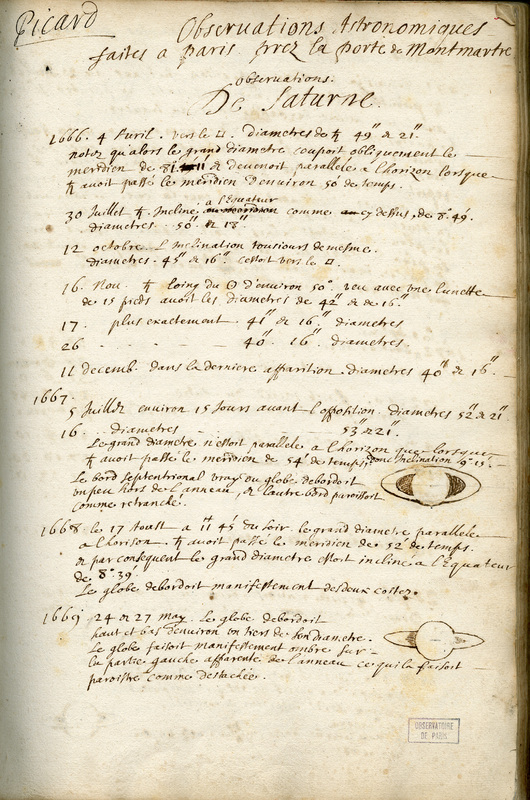 Picard
Observations Astronomiques
faites a Paris prez la porte de Montmartre
Observations.
De Saturne.
1666. 4 Avril. vers le □. Diametres de ♄ 49" & 21".
notez qu'alors le grand diametre coupoit obliquement le
meridien de & devenoit parallele a l'horizon lorsque
♄ avoit passé le meridien d'environ 50' de temps.
a l'Equateur
30 Juillet ♄. Incline comme cy dessus, de 8°. 49'.
diametres. 50". & 18".
12 octobre. L'Inclination tousiours de mesme.
diametres. 45" & 16". c'estoit vers le □.
16. Nov. ♄ loing du ☉ d'environ 50°. veu avec une lunette
de 15 pieds avoit les diametres de 42" & de 16".
17. plus exactement 41" & 16". diametres
26 - - - 40". 16". diametres.
11 decemb. dans la derniere apparition. diametres 40" & 16".
1667.
5 Juillet environ 15 Jours avant l'opposition. diametres 52" & 21"
16. diametres - - 53" & 21".
Le grand diametre n'estoit parallele a l'horizon que lorsque
♄ avoit passé le meridien de 54' de temps, donc Inclination 9°. 15'.
Le bord septentrional vray du globe debordoit
un peu hors de l'anneau, & l'autre bord paroissoit
comme retranché.
1668. le 17 Aoust a 11h 45' du soir. le grand diametre parallele
a l'horison. ♄ avoit passé le meridien de 52' de temps.
& par consequent le grand diametre estoit incliné a l'Equateur
de 8°. 39'.
Le globe debordoit manifestement des deux costez.
1669 24 & 27 may. Le globe debordoit
haut et bas d'environ un tiers de son diametre.
Le globe faisoit manifestement ombre sur
la partie gauche apparente de l'anneau ce qui la faisoit
paroistre comme destachée.
OBSERVATOIRE
DE PARIS